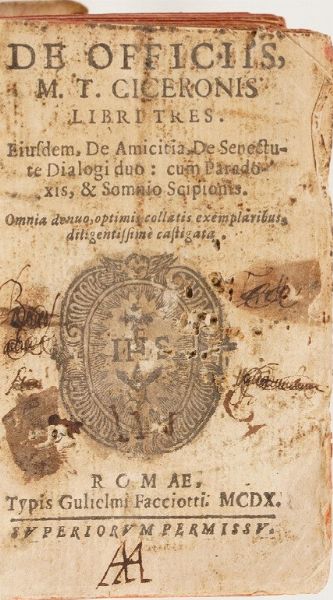 DE OFFICIIS,
M. T. CICERONIS
LIBRI TRES.
Eiusdem, De Amicitia, De Senectu-
te Dialogi duo: cum Parado-
xis, & Somnio Scipionis.
Omnia denuo, optimis collatis exemplaribus,
diligentissimè castigata
IHS
ROMAE,
Typis Gulielmi Facciotti. MCDX.
SVPERIORVM PERMISSV.